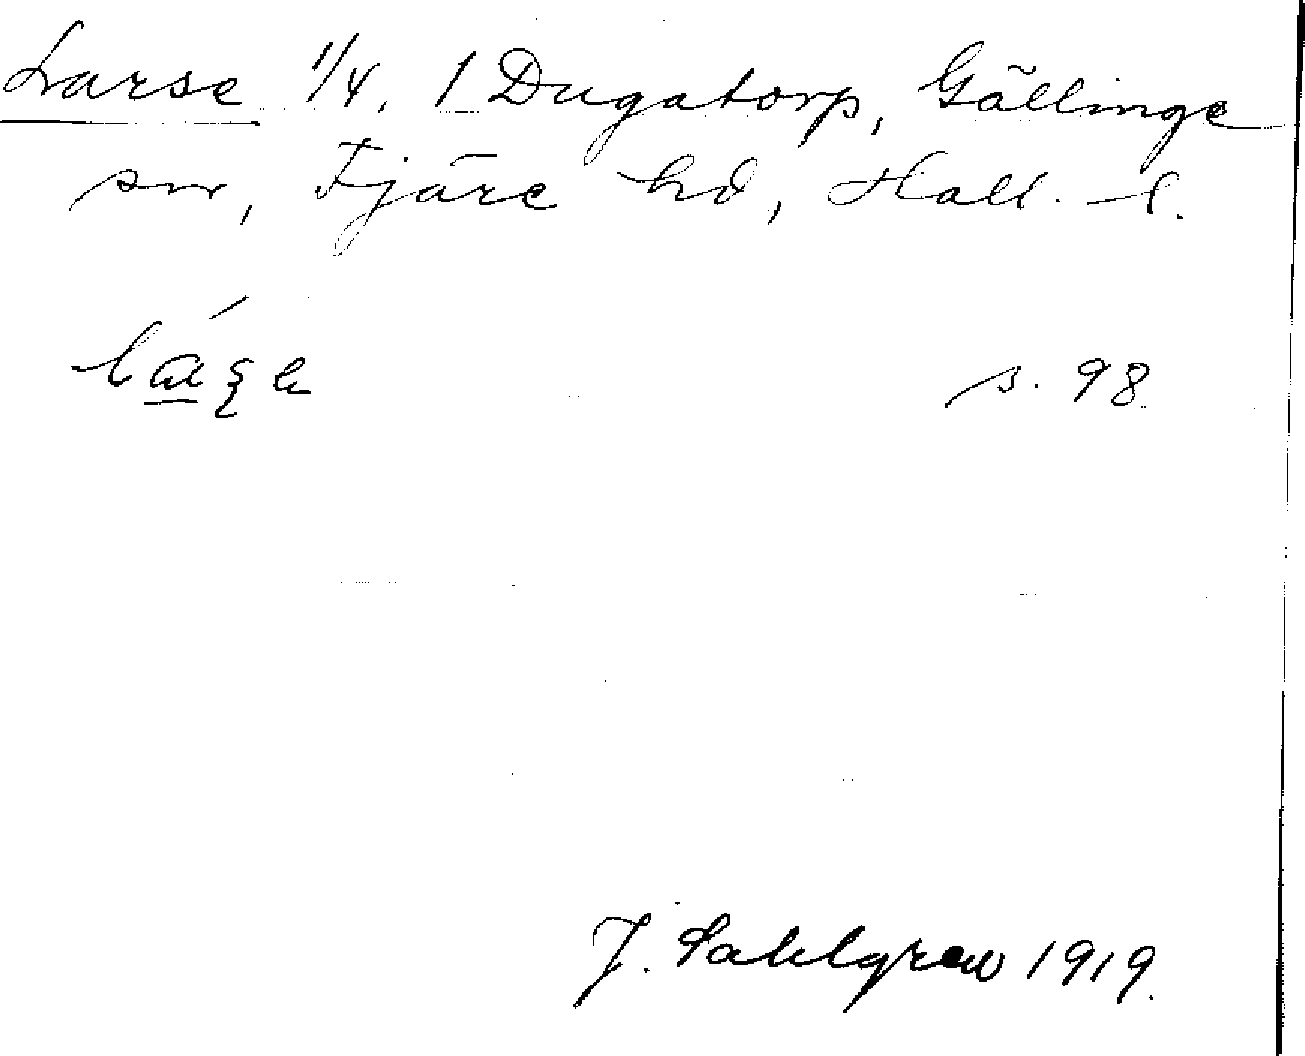 Larse 1/4, 1 Dugatorp, Gällinge
sn, Fjäre hd, Hall. l.
s. 98
J. Sahlgren 1919.